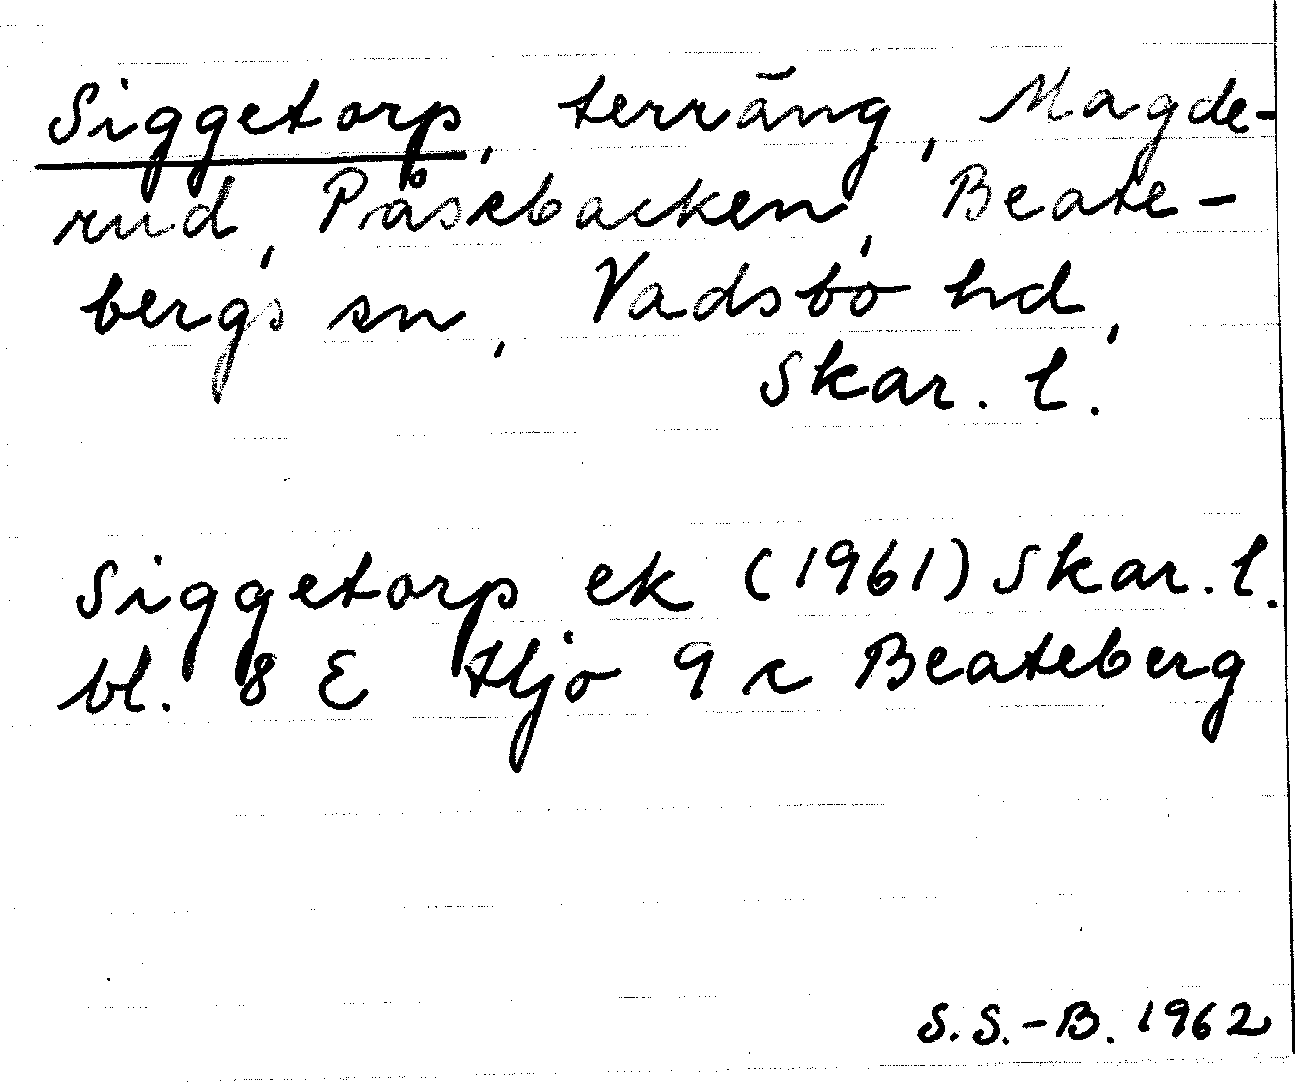 Siggetorp, terräng, Magde-
rud, Påsebacken, Beate-
bergs sn, Vadsbo hd,
Skar. l.
Siggetorp ek (1961) Skar. l.
bl. 8 E Hjo 9 c Beateberg
S.S.-B. 1962